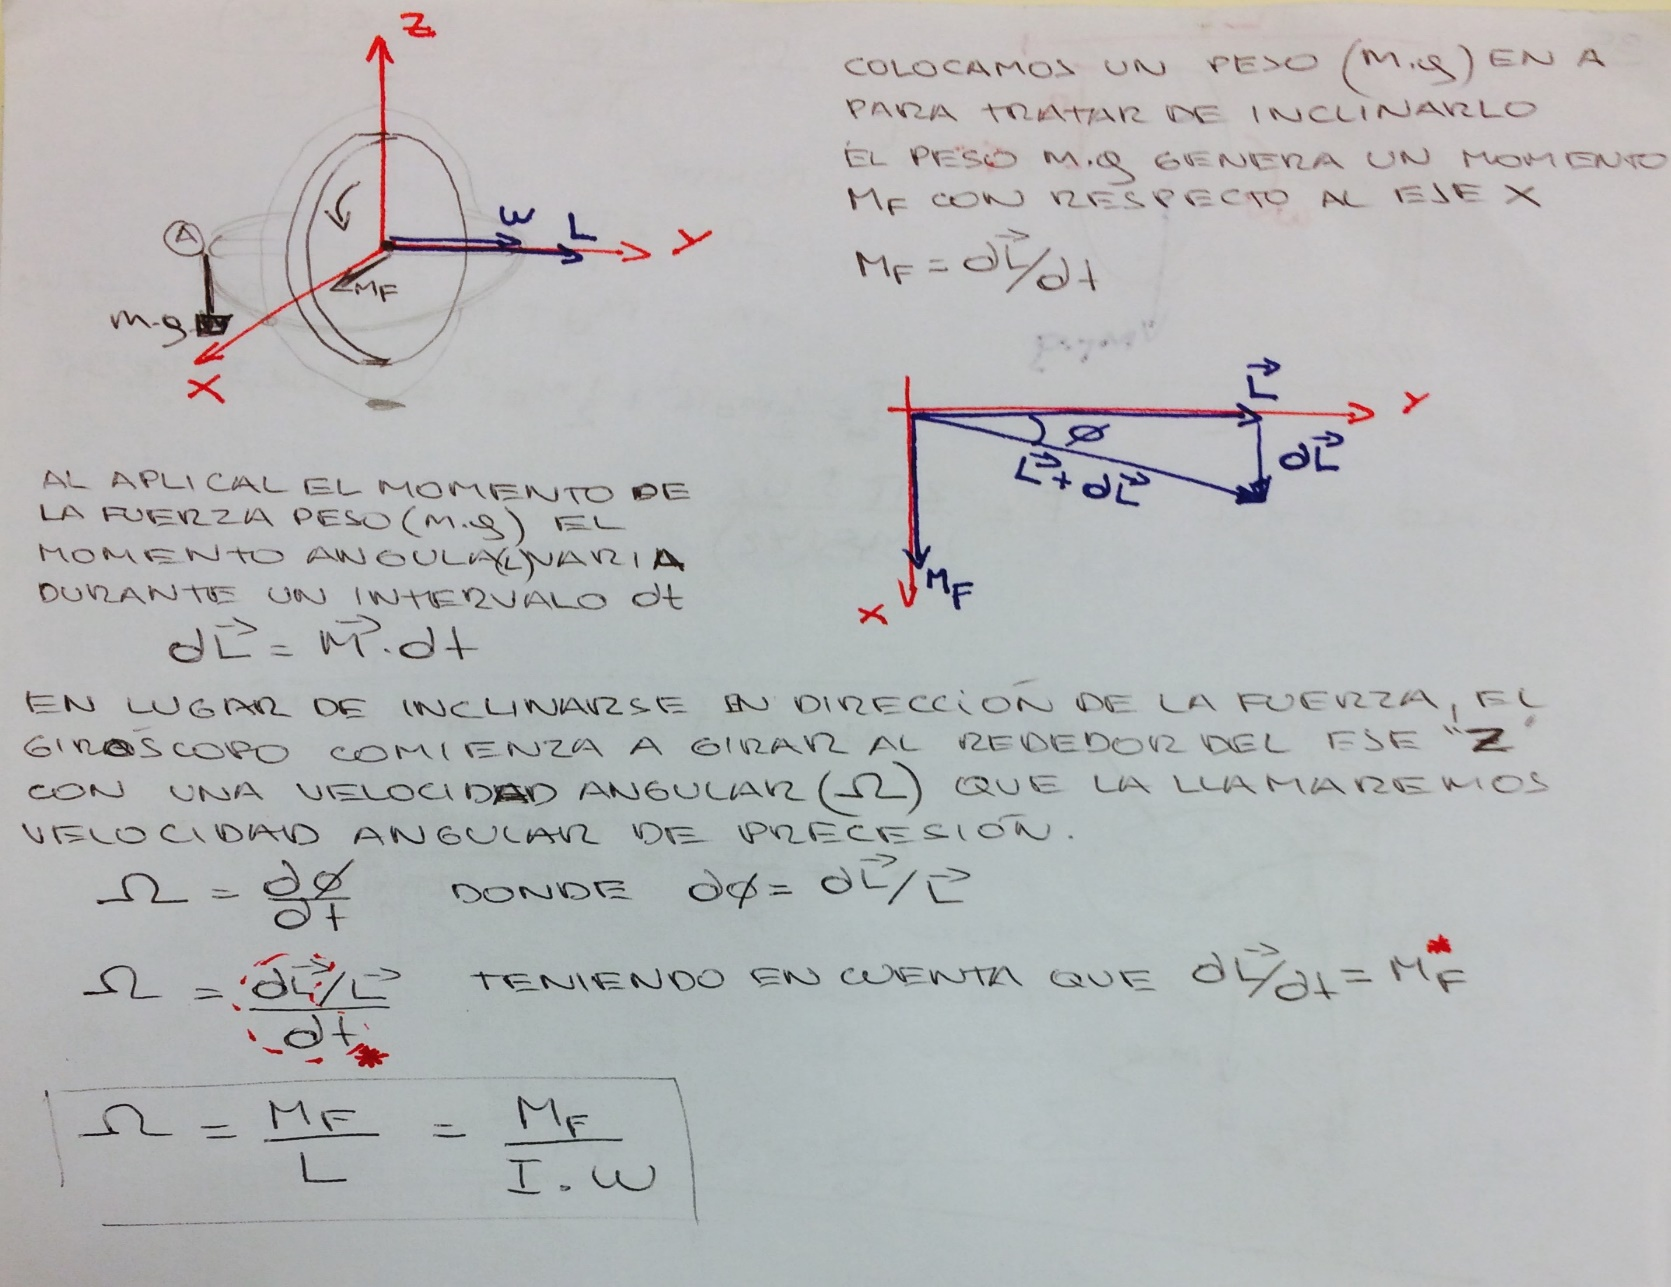 Z
A
ω
L
Y
M_F
m.g
X
COLOCAMOS UN PESO (M.g) EN A
PARA TRATAR DE INCLINARLO
EL PESO M.g GENERA UN MOMENTO
M_F CON RESPECTO AL EJE X
M_F = dL⃗/dt
L⃗
Y
Ø
dL⃗
L⃗ + dL⃗
M_F
X
AL APLICAL EL MOMENTO DE
LA FUERZA PESO (M.g) EL
MOMENTO ANGULA(L) VARIA
DURANTE UN INTERVALO dt
dL⃗ = M⃗ . dt
EN LUGAR DE INCLINARSE EN DIRECCIÓN DE LA FUERZA, EL
GIROSCOPO COMIENZA A GIRAR AL REDEDOR DEL EJE "Z"
CON UNA VELOCIDAD ANGULAR (Ω) QUE LA LLAMAREMOS
VELOCIDAD ANGULAR DE PRECESIÓN.
Ω = dØ/dt DONDE dØ = dL⃗/L⃗
Ω = (dL⃗/L⃗)/dt * TENIENDO EN CUENTA QUE dL⃗/dt = M_F *
Ω = M_F/L = M_F/(I . ω)